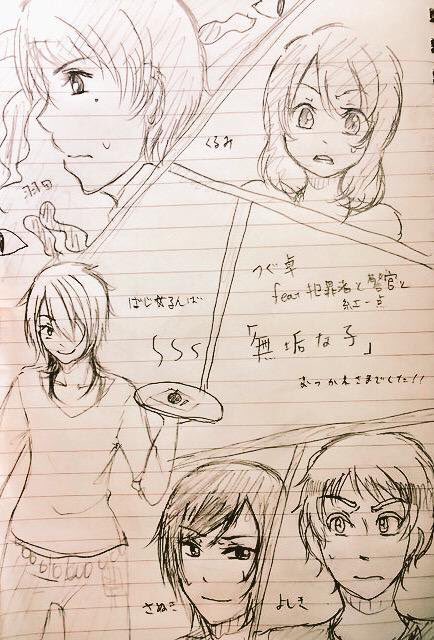 くるみ
つぐ卓
feat 犯罪者と警官と
紅一点
「無垢な子」
おつかれさまでした!!
さぬき
よしき